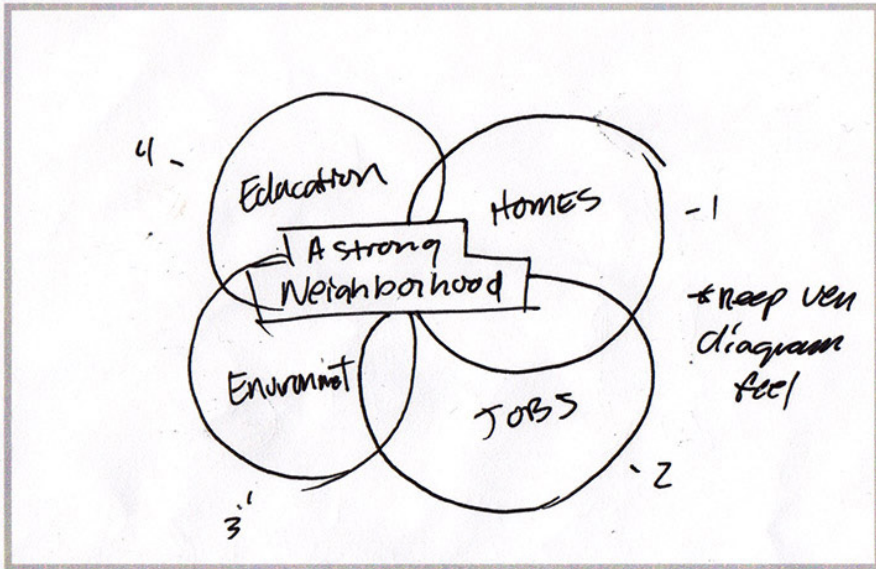 4 -
Education
HOMES
- 1
A strong
Neighborhood
*Keep ven
diagram
feel
Environmt
JOBS
- 2
3